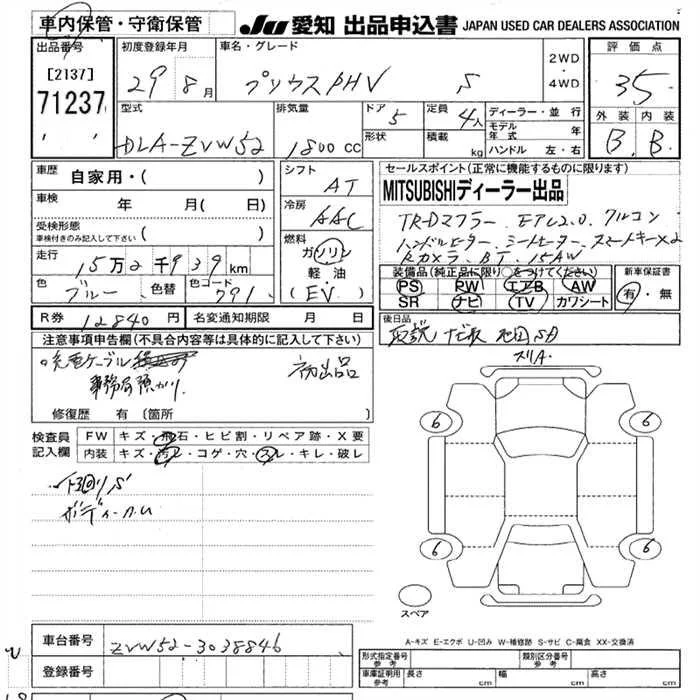 車内保管・守衛保管
JU 愛知 出品申込書 JAPAN USED CAR DEALERS ASSOCIATION
出品番号 初度登録年月 車名・グレード 評価点
[2137] 29 8月 プリウスPHV S 2WD・4WD 35
71237
型式 排気量 ドア 定員 ディーラー・並行 外装 内装
DLA-ZVW52 1800cc 5 4人 モデル年式 年 B B
形状 積載 kg ハンドル 左・右
車歴 自家用・( ) シフト AT
セールスポイント(正常に機能するものに限ります)
車検 年 月( 日) 冷房 AAC
MITSUBISHIディーラー出品
受検形態 車検付きのみ記入して下さい ( )
TR-Dマフラー. モデル2.0. アルコン
燃料 ガソリン 軽油・(EV)
ハンドルヒーター. シートヒーター. スマートキー×2
走行 15万2千939km
Rカメラ. BT. 15AW
装備品(純正品に限り○をつけてください) 新車保証書
色 ブルー 色替 色コード 791
PS PW エアB AW 有・無
SR ナビ TV カワシート
R券 12840円 名変通知期限 月 日
後日品
取説 ナビ取 地図SD
注意事項申告欄(不具合内容等は具体的に記入して下さい)
充電ケーブル 初出品
事務局預かり
スリA.
修復歴 有 〔箇所 〕
検査員記入欄 FW キズ・飛石・ヒビ割・リペア跡・X要
内装 キズ・汚レ・コゲ・穴・スレ・キレ・破レ
下回りS
ボディーA.U
6 6
6 6
スペア
A-キズ E-エクボ U-凹み W-補修跡 S-サビ C-腐食 XX-交換済
車台番号 ZVW52-3038846
登録番号
形式指定番号 参考 類別区分番号 参考
車庫証明用 参考 長さ cm 幅 cm 高さ cm